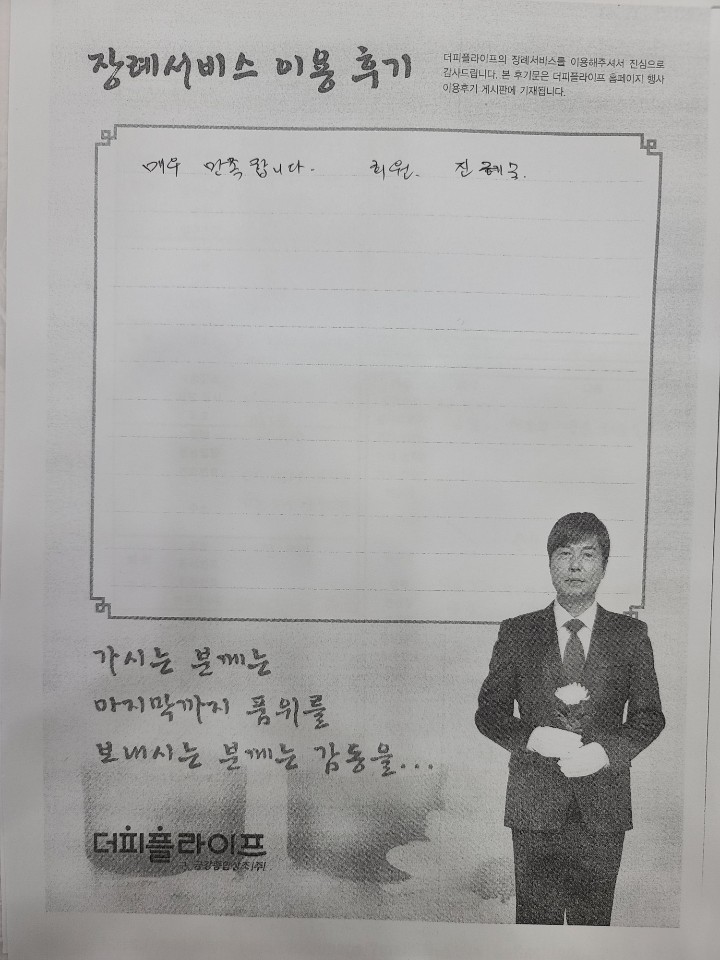 장례서비스 이용 후기
더피플라이프의 장례서비스를 이용해주셔서 진심으로
감사드립니다. 본 후기문은 더피플라이프 홈페이지 행사
이용후기 게시판에 기재됩니다.
매우 만족합니다. 회원. 진
가시는 분께는
마지막까지 품위를
보내시는 분께는 감동을...
더피플라이프
금강종합상조(주)